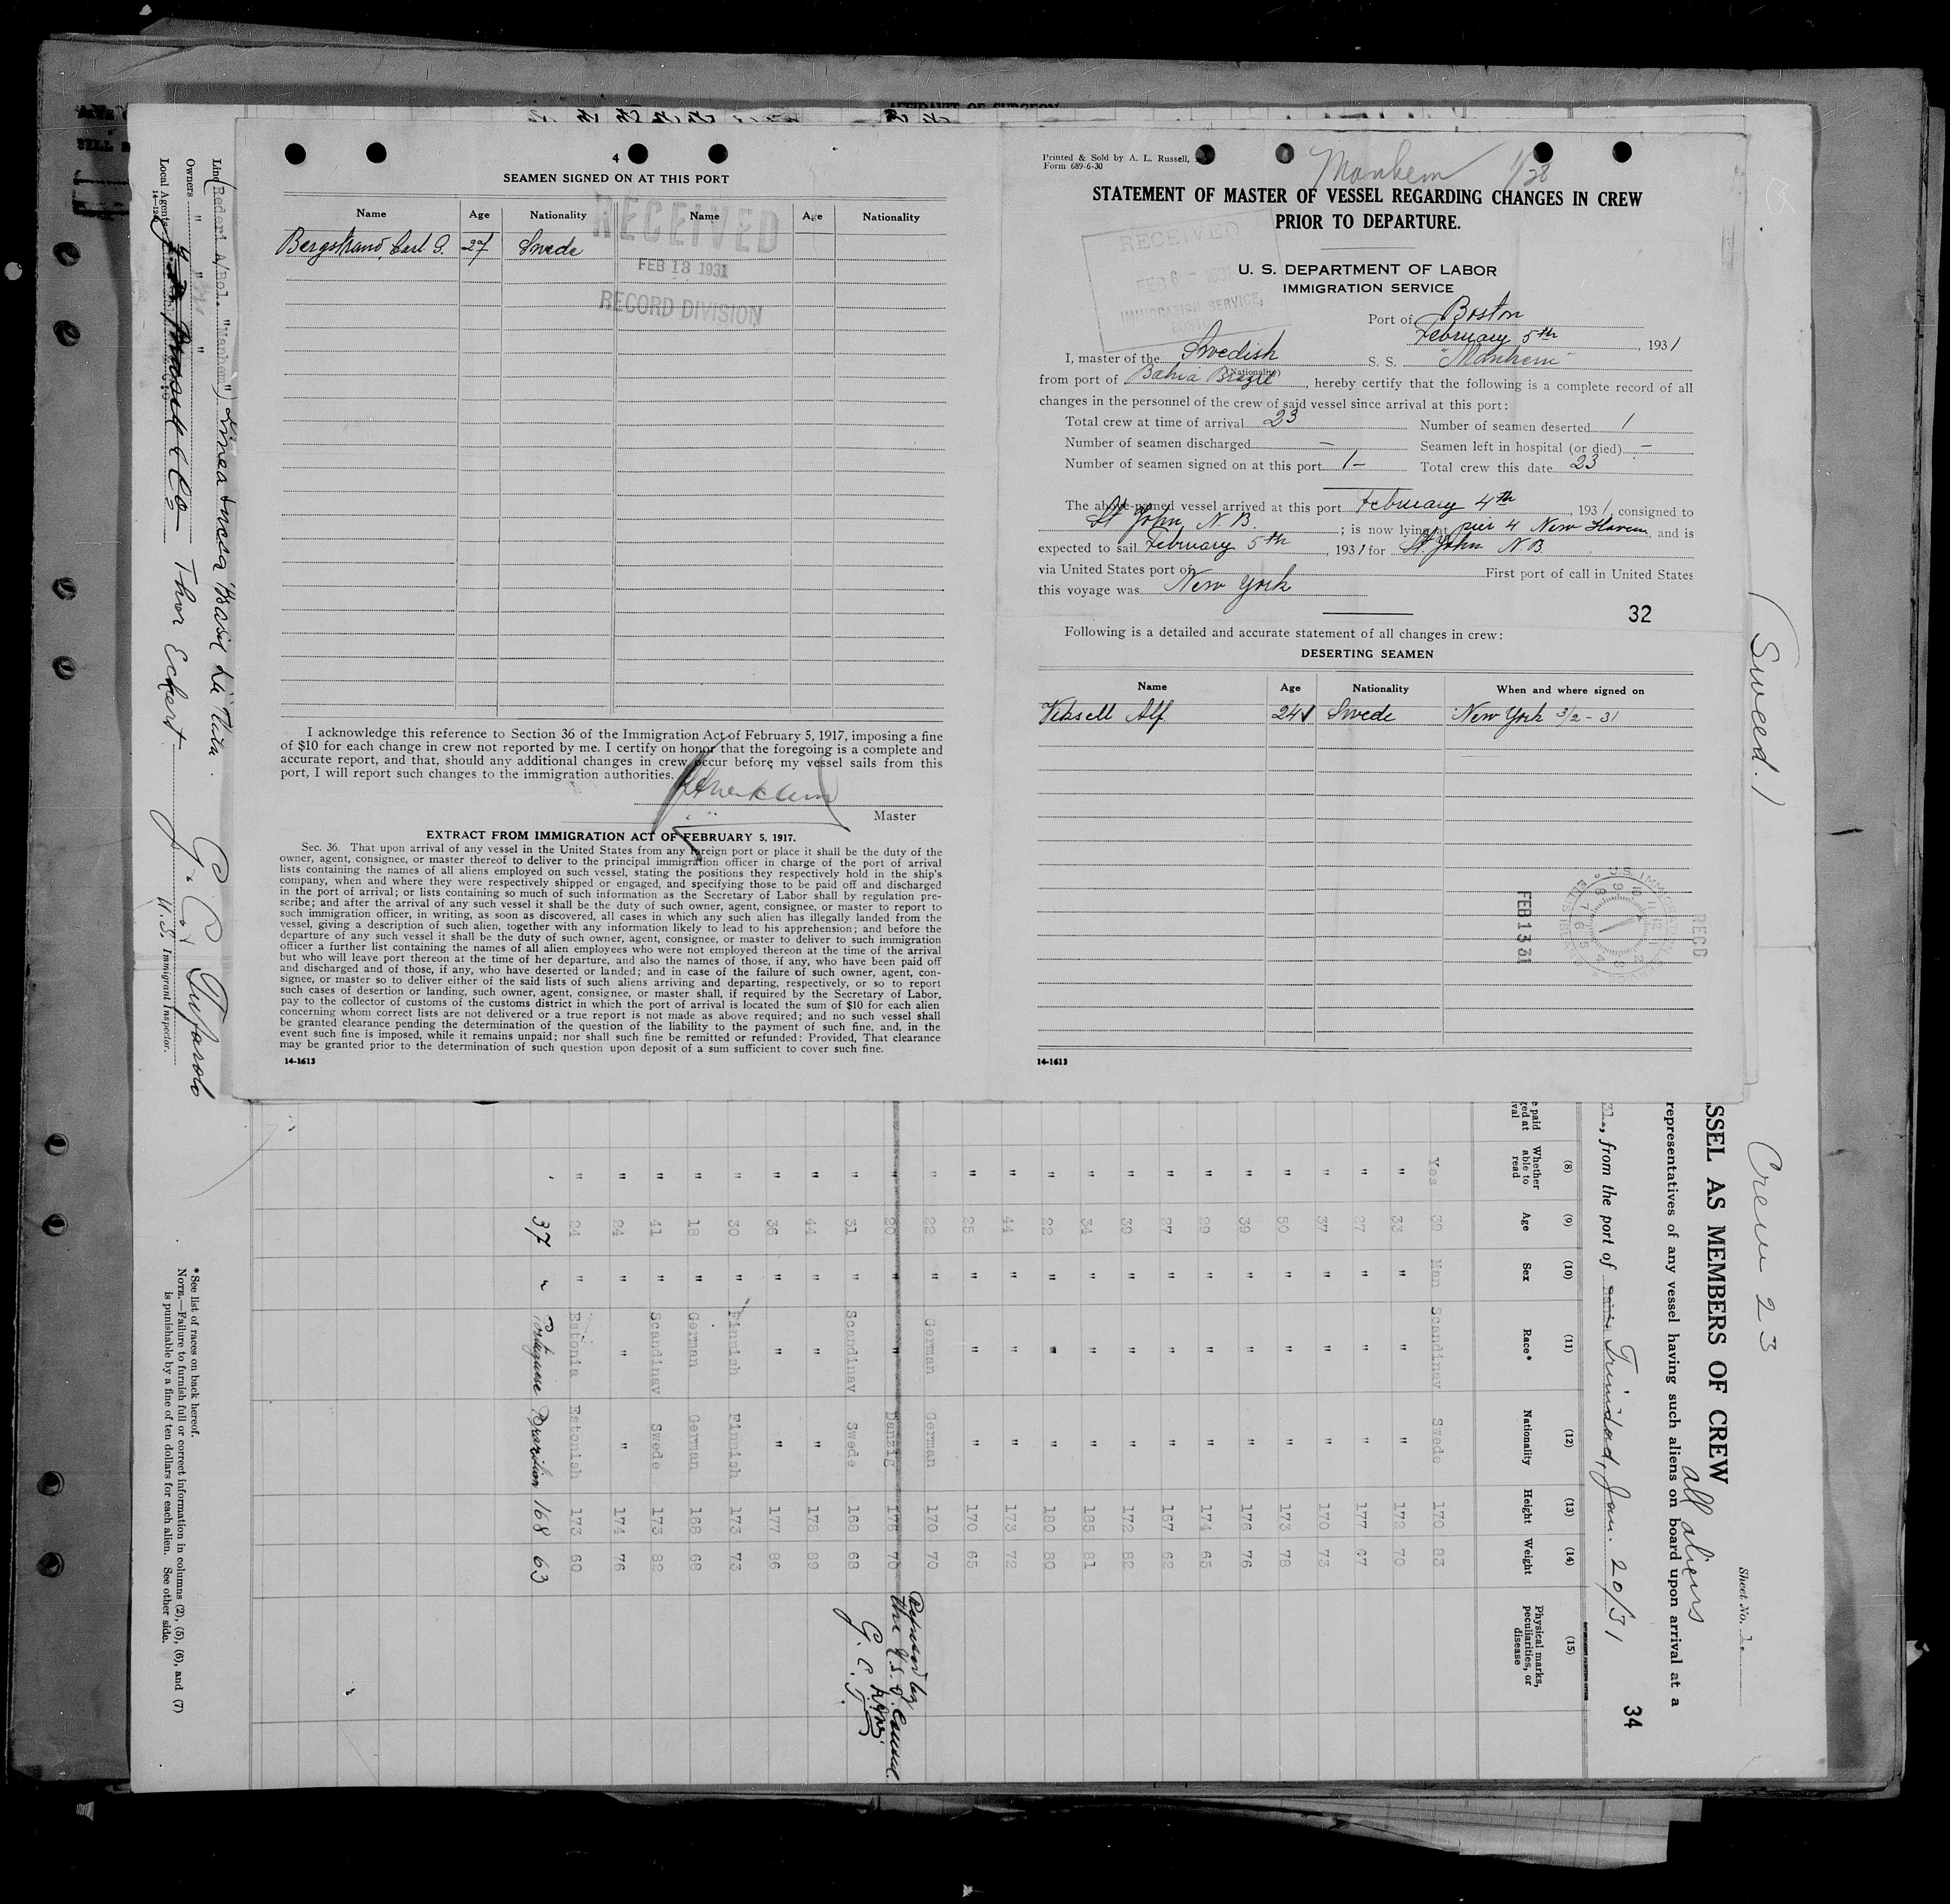 4
SEAMEN SIGNED ON AT THIS PORT
Name Age Nationality Name Age Nationality
Bergstrand, Carl G. 27 Swede
RECEIVED
FEB 13 1931
RECORD DIVISION
I acknowledge this reference to Section 36 of the Immigration Act of February 5, 1917, imposing a fine
of $10 for each change in crew not reported by me. I certify on honor that the foregoing is a complete and
accurate report, and that, should any additional changes in crew occur before my vessel sails from this
port, I will report such changes to the immigration authorities.
Master
EXTRACT FROM IMMIGRATION ACT OF FEBRUARY 5, 1917.
Sec. 36. That upon arrival of any vessel in the United States from any foreign port or place it shall be the duty of the
owner, agent, consignee, or master thereof to deliver to the principal immigration officer in charge of the port of arrival
lists containing the names of all aliens employed on such vessel, stating the positions they respectively hold in the ship's
company, when and where they were respectively shipped or engaged, and specifying those to be paid off and discharged
in the port of arrival; or lists containing so much of such information as the Secretary of Labor shall by regulation pre-
scribe; and after the arrival of any such vessel it shall be the duty of such owner, agent, consignee, or master to report to
such immigration officer, in writing, as soon as discovered, all cases in which any such alien has illegally landed from the
vessel, giving a description of such alien, together with any information likely to lead to his apprehension; and before the
departure of any such vessel it shall be the duty of such owner, agent, consignee, or master to deliver to such immigration
officer a further list containing the names of all alien employees who were not employed thereon at the time of the arrival
but who will leave port thereon at the time of her departure, and also the names of those, if any, who have been paid off
and discharged and of those, if any, who have deserted or landed; and in case of the failure of such owner, agent, con-
signee, or master so to deliver either of the said lists of such aliens arriving and departing, respectively, or so to report
such cases of desertion or landing, such owner, agent, consignee, or master shall, if required by the Secretary of Labor,
pay to the collector of customs of the customs district in which the port of arrival is located the sum of $10 for each alien
concerning whom correct lists are not delivered or a true report is not made as above required; and no such vessel shall
be granted clearance pending the determination of the question of the liability to the payment of such fine, and, in the
event such fine is imposed, while it remains unpaid; nor shall such fine be remitted or refunded: Provided, That clearance
may be granted prior to the determination of such question upon deposit of a sum sufficient to cover such fine.
14-1613
Printed & Sold by A. L. Russell,
Form 689-6-30
Manhem 1/28
STATEMENT OF MASTER OF VESSEL REGARDING CHANGES IN CREW
PRIOR TO DEPARTURE.
RECEIVED
FEB 6 - 1931
IMMIGRATION SERVICE,
BOSTON
U. S. DEPARTMENT OF LABOR
IMMIGRATION SERVICE
Port of Boston
February 5th, 1931
I, master of the Swedish S. S. "Manhem"
(Nationality)
from port of Bahia Brazil, hereby certify that the following is a complete record of all
changes in the personnel of the crew of said vessel since arrival at this port:
Total crew at time of arrival 23 Number of seamen deserted 1
Number of seamen discharged — Seamen left in hospital (or died) —
Number of seamen signed on at this port 1- Total crew this date 23
The above-named vessel arrived at this port February 4th, 1931, consigned to
St John, N. B.; is now lying at pier 4 New Haven, and is
expected to sail February 5th, 1931 for St. John N.B.
via United States port of First port of call in United States
this voyage was New York
32
Following is a detailed and accurate statement of all changes in crew:
DESERTING SEAMEN
Name Age Nationality When and where signed on
Alf 24 Swede New York 3/2 - 31
FEB 13 31
REC'D
14-1613
(Sweed.)
Crew 23
Sheet No. 1
SSEL AS MEMBERS OF CREW
all aliens
representatives of any vessel having such aliens on board upon arrival at a
, from the port of Trinidad, Jan. 20/31
34
(8) (9) (10) (11) (12) (13) (14) (15)
Whether able to read Age Sex Race* Nationality Height Weight Physical marks, peculiarities, or disease
Yes 39 Man Scandinav Swede 170 83
" 33 " " " 172 70
" 27 " " " 177 67
" 37 " " " 170 73
" 50 " " " 173 78
" 39 " " " 176 76
" 29 " " " 174 65
" 27 " " " 167 62
" 39 " " " 172 82
" 34 " " " 185 81
" 22 " " " 180 80
" 44 " " " 173 72
" 25 " " " 170 65
" 22 " German German 170 70
" 20 " " Danzig 178 70
" 31 " Scandinav Swede 168 68
" 44 " " " 178 89
" 36 " " " 177 86
" 30 " Finnish Finnish 173 73
" 18 " German German 168 68
" 41 " Scandinav Swede 173 82
" 24 " " " 174 76
" 24 " Estonia Estonish 173 60
37 " Portuguese Brazilian 168 63
Refused by
the U.S. Consul.
G. C. T.
Line (Rederi A/Bol. "Manhem") Linea Sueca Brasil La Plata
Owners " " "
Local Agents & Co Thor Eckert
G. C. Tufarolo
U.S. Immigrant Inspector.
*See list of races on back hereof.
NOTE.—Failure to furnish full or correct information in columns (2), (5), (6), and (7)
is punishable by a fine of ten dollars for each alien. See other side.
AFFIDAVIT OF SURGEON